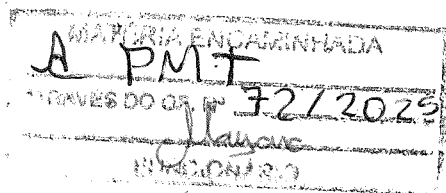 MATÉRIA ENCAMINHADA
A PMT
ATRAVÉS DO OF. Nº 72/2025
FUNCIONÁRIO